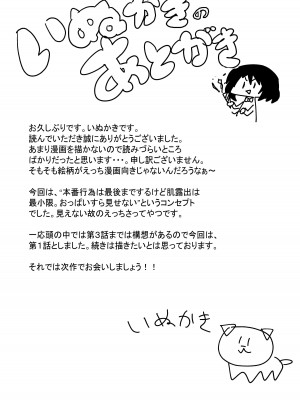 いぬかきの
あとがき
お久しぶりです。いぬかきです。
読んでいただき誠にありがとうございました。
あまり漫画を描かないので読みづらいところ
ばかりだったと思います・・・。申し訳ございません。
そもそも絵柄がえっち漫画向きじゃないんだろうなぁ～
今回は、“本番行為は最後まですけど肌露出は最
小限。おっぱいすら見せない”というコンセプト
でした。見えない故のえっちさってやつです。
一応頭の中では第３話までは構想があるので今回は、
第１話としました。続きは描きたいとは思っております。
それでは次作でお会いしましょう！！
いぬかき